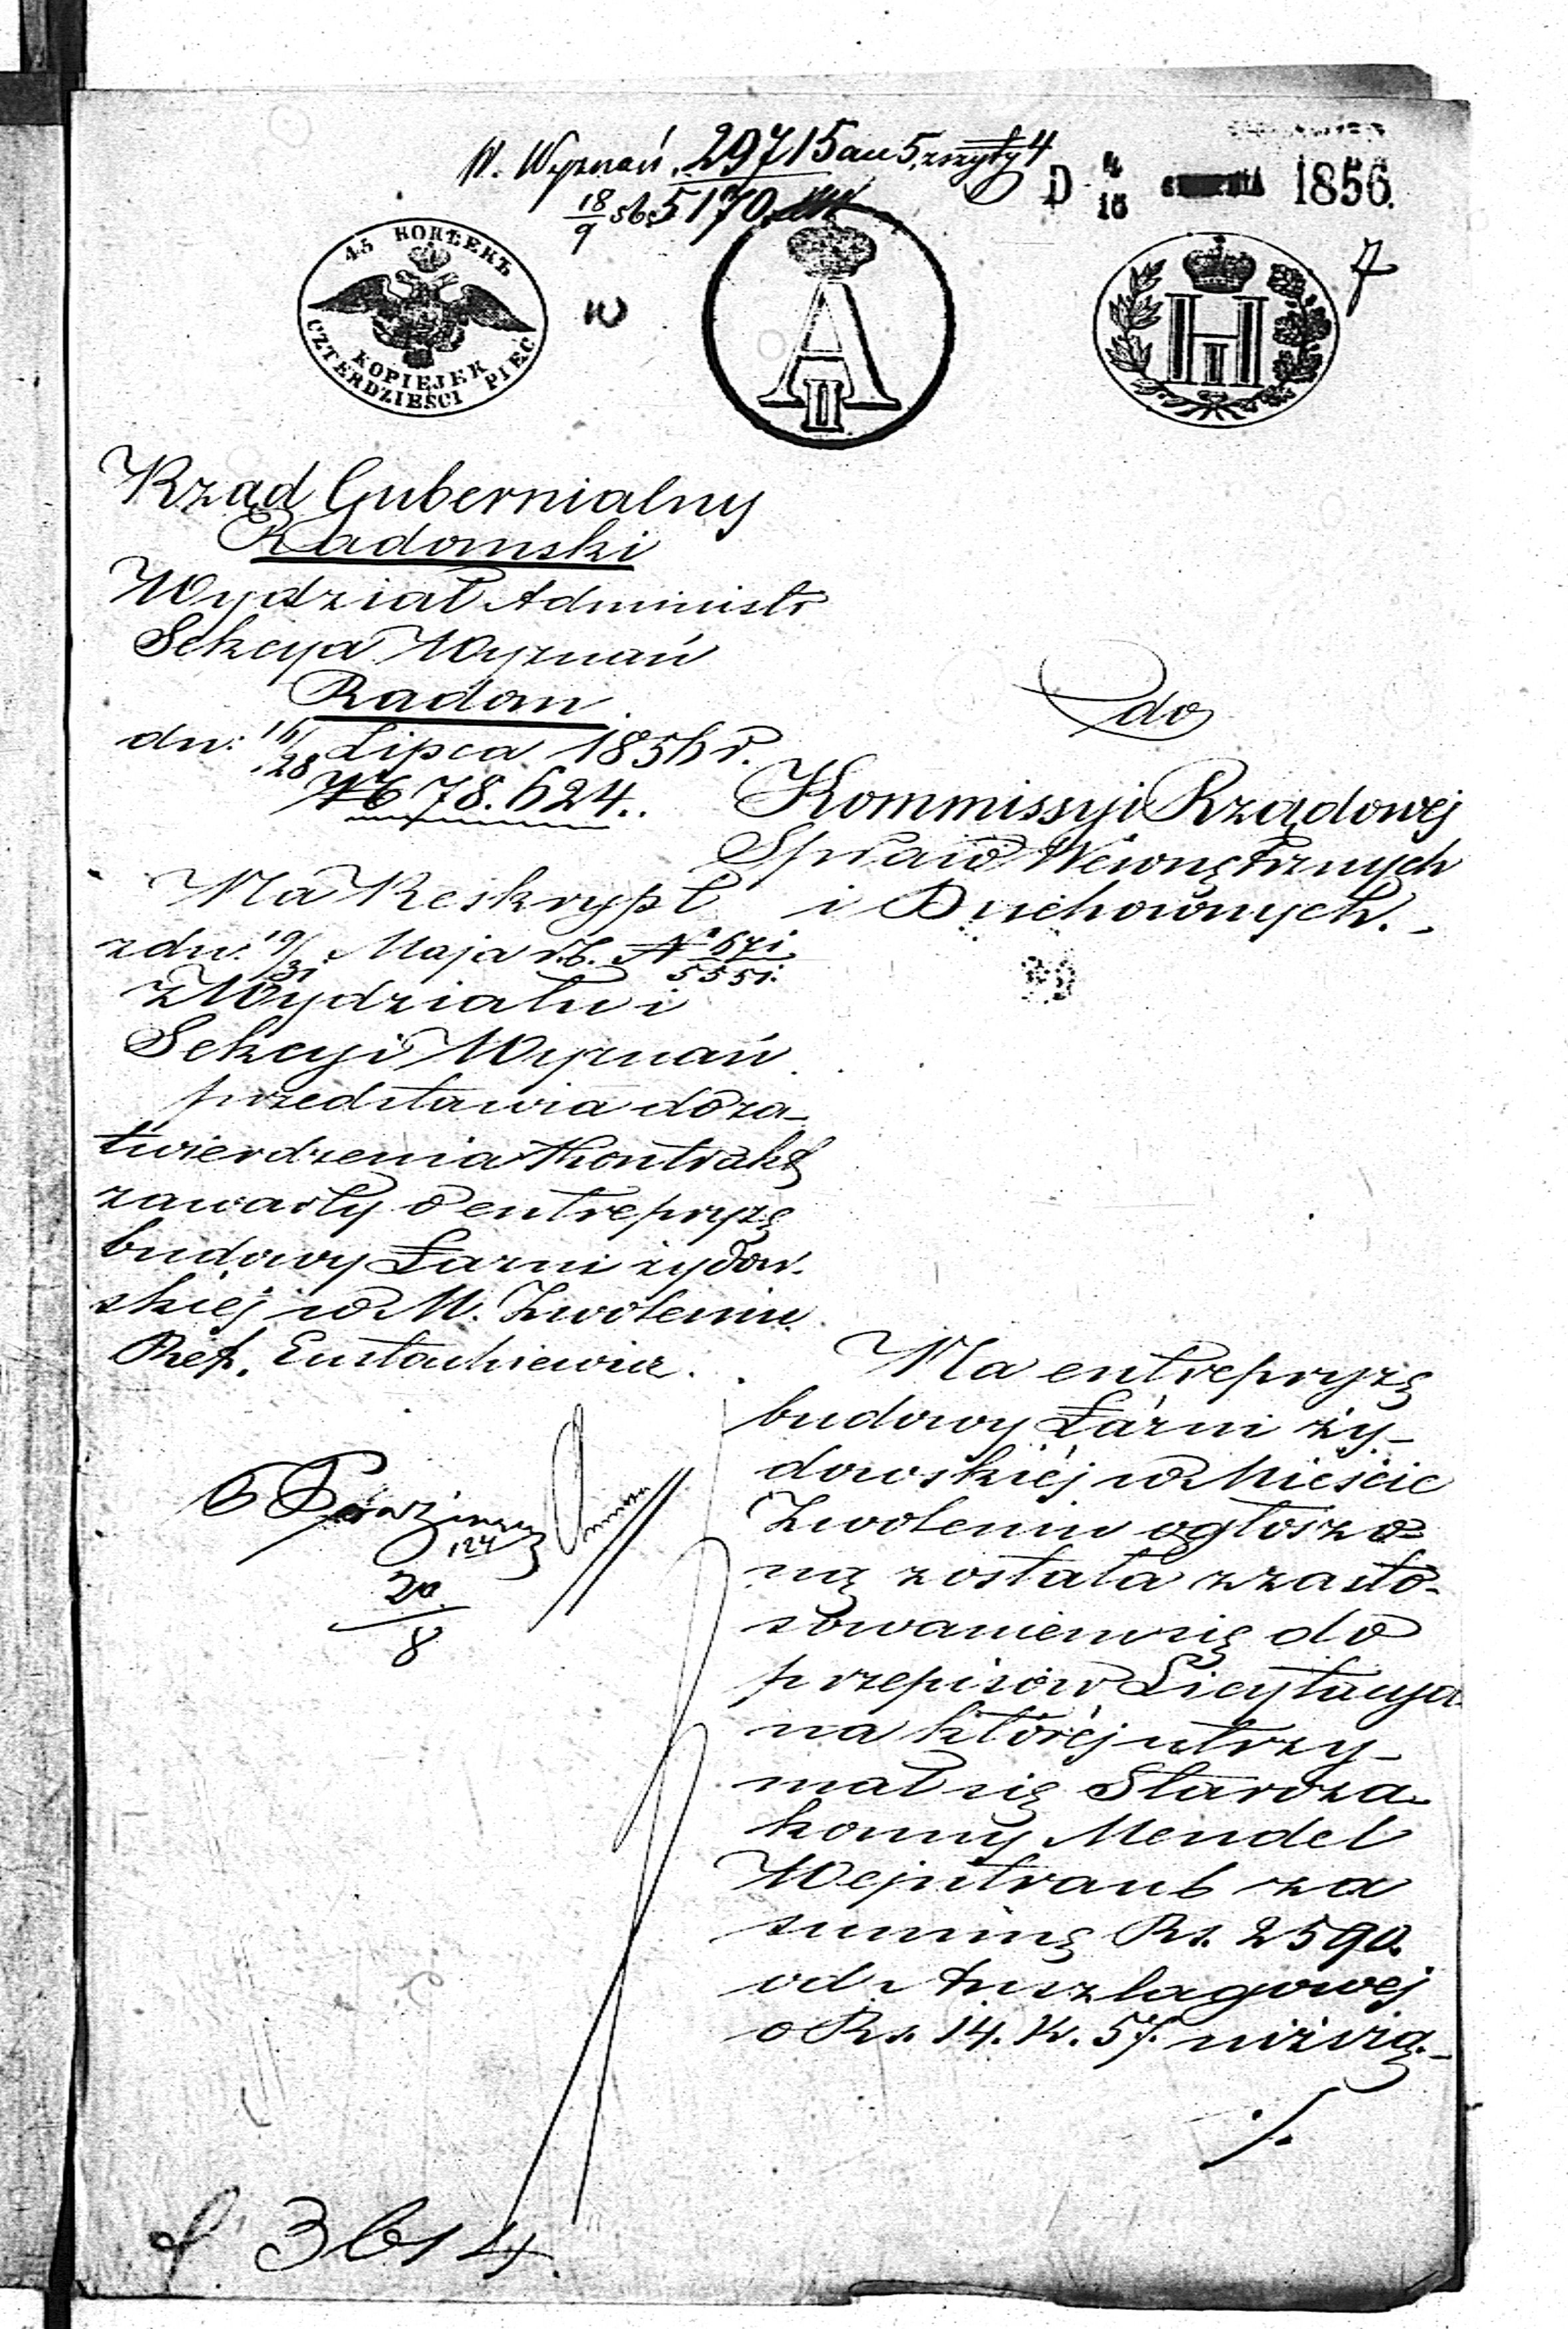 W. Wyznań. 29715 au 5, zszyty 4
18/9 sb. 5170.
D 4/16 SIERPNIA 1856.
45 КОПѢЕКЪ
KOPIEJEK
CZTERDZIEŚCI PIĘĆ
w
A II
H II
7
Rząd Gubernialny
Radomski
Wydział Administr
Sekcya Wyznań
Radom.
dn: 16/28 Lipca 1856 r.
№ 78.624.
do
Kommissyi Rządowej
Spraw Wewnętrznych
i Duchownych.
Na Reskrypt
z dn: 19/31 Maja r.b. № 671/5551.
z Wydziału i
Sekcyi Wyznań
przedstawia do za-
twierdzenia Kontrakt
zawarty o entrepryzę
budowy Łazni żydow-
skiej w M. Zwoleniu.
Ref. Eustachiewicz.
20/8
Na entrepryzę
budowy Łazni ży-
dowskiéj w Mieście
Zwoleniu ogłoszo-
ną została z zasto-
sowaniem się do
przepisów Licytacya
na któréj utrzy-
mał się Staroza-
konny Mendel
Wejntraub za
summę Rs. 2590.
od Anszlagowej
o Rs. 14. K. 57. niższą.-
./.